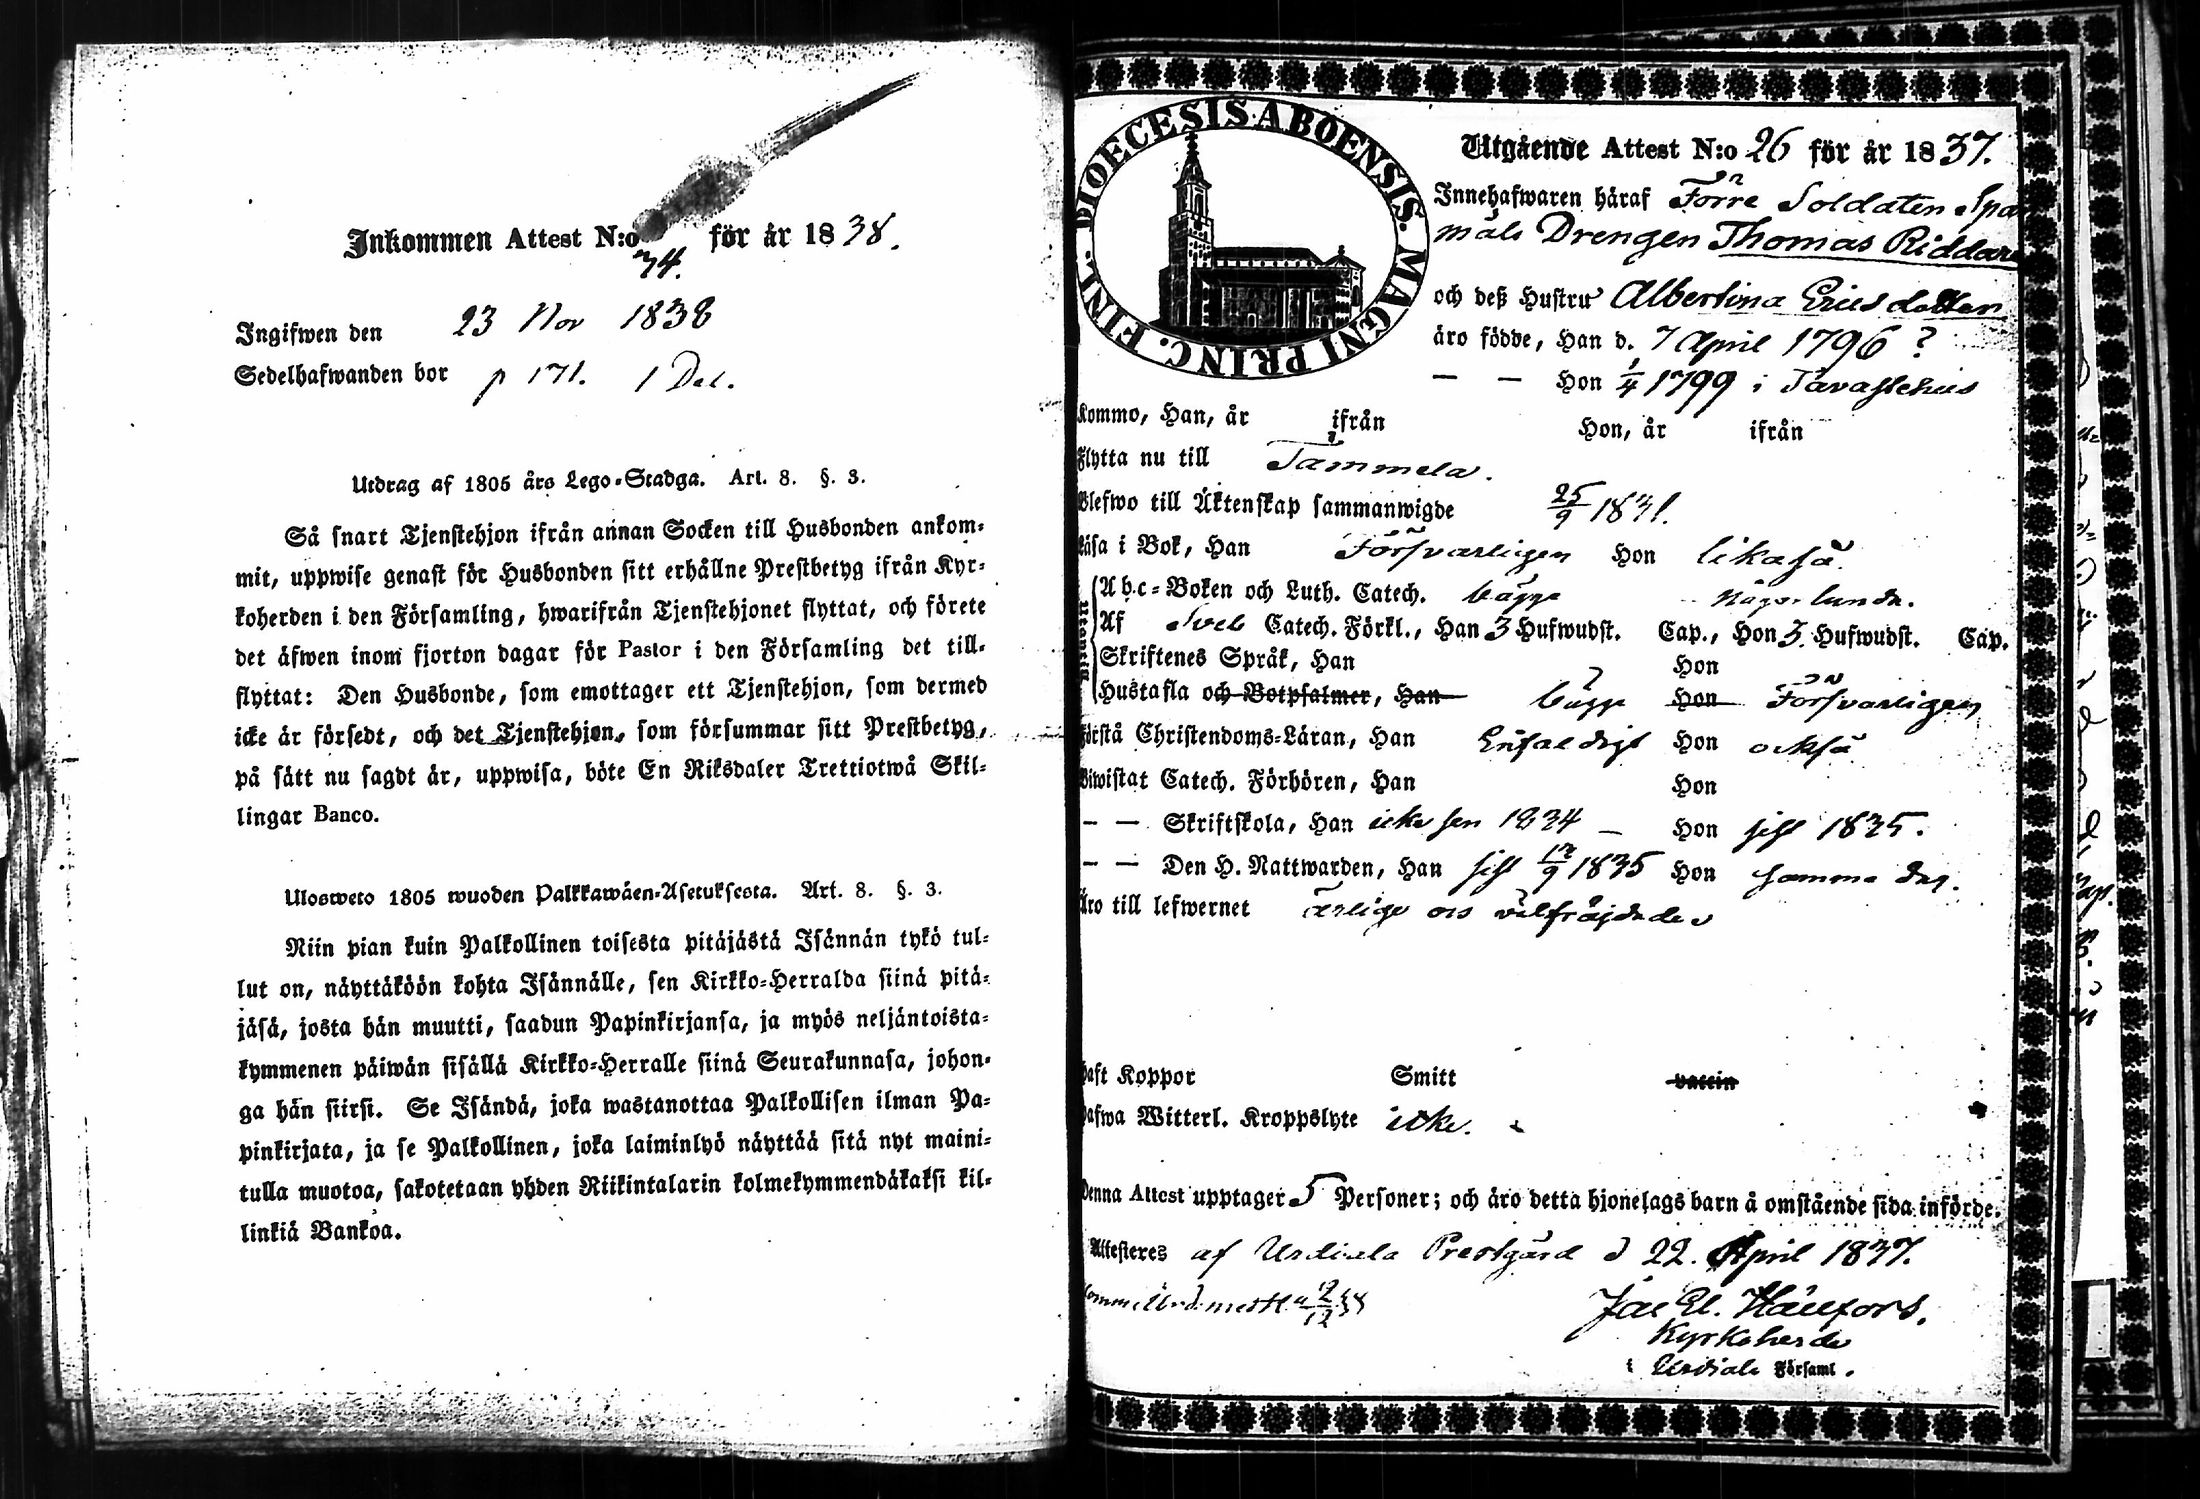 Inkommen Attest N:o för år 1838.
74.
Ingifwen den 23 Nov 1838
Sedelhafwanden bor p 171. 1 Del.
Utdrag af 1805 års Lego-Stadga. Art. 8. §. 3.
Så snart Tjenstehjon ifrån annan Socken till Husbonden ankom-
mit, uppwise genast för Husbonden sitt erhållne Prestbetyg ifrån Kyr-
koherden i den Församling, hwarifrån Tjenstehjonet flyttat, och förete
det äfwen inom fjorton dagar för Pastor i den Församling det till-
flyttat: Den Husbonde, som emottager ett Tjenstehjon, som dermed
icke är försedt, och det Tjenstehjon, som försummar sitt Prestbetyg,
på sätt nu sagdt är, uppwisa, böte En Riksdaler Trettiotwå Skil-
lingar Banco.
Ulosweto 1805 wuoden Palkkawäen-Asetuksesta. Art. 8. §. 3.
Niin pian kuin Palkollinen toisesta pitäjästä Isännän tykö tul-
lut on, näyttäköön kohta Isännälle, sen Kirkko-Herralda siinä pitä-
jäsä, josta hän muutti, saadun Papinkirjansa, ja myös neljäntoista-
kymmenen päiwän sisällä Kirkko-Herralle siinä Seurakunnasa, johon-
ga hän siirsi. Se Isändä, joka wastanottaa Palkollisen ilman Pa-
pinkirjata, ja se Palkollinen, joka laiminlyö näyttää sitä nyt maini-
tulla muotoa, sakotetaan yhden Riikintalarin kolmekymmendäkaksi kil-
linkiä Bankoa.
DIOECESIS ABOENSIS. MAGNI PRINC. FINL.
Utgående Attest N:o 26 för år 1837.
Innehafwaren häraf Förre Soldaten Span
måls Drengen Thomas Riddare
och deß Hustru Albertina Ericsdotter
äro födde, Han d. 7 April 1796 ?
— — Hon 1/4 1799 i Tavastehus
Kommo, Han, år ifrån Hon, år ifrån
Flytta nu till Tammela.
Blefwo till Äktenskap sammanwigde 25/9 1831.
Läsa i Bok, Han Försvarligen Hon likaså.
Utantill
Abc-Boken och Luth. Catech. bägge någorlunda.
Af Sveb Catech. Förkl., Han 3 Hufwudst. Cap., Hon 3. Hufwudst. Cap.
Skriftenes Språk, Han Hon
Hustafla och Botpsalmer, Han bägge Hon Försvarligen
Förstå Christendoms-Läran, Han Enfaldigt Hon också
Biwistat Catech. Förhören, Han Hon
— — Skriftskola, Han icke sen 1834 — Hon sist 1835.
— — Den H. Nattwarden, Han sist 13/9 1835 Hon samma dag.
Äro till lefwernet ärlige och välfräjdade
Haft Koppor Smitt vaccin
Hafwa Witterl. Kroppslyte icke.
Denna Attest upptager 5 Personer; och äro detta hjonelags barn å omstående sida införde.
Attesteres af Urdiala Prestgård d 22. April 1837.
2/12 38
Jac El. Hällfors.
Kyrkoherde
i Urdiala Församl.